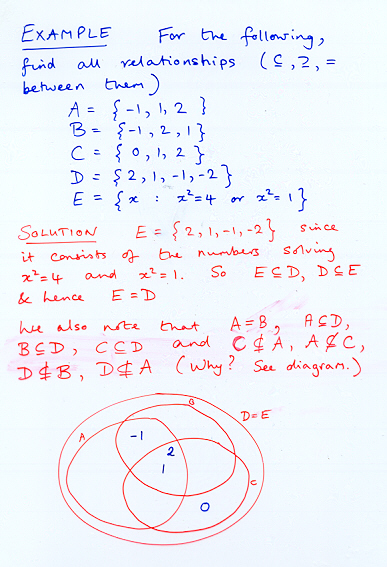 EXAMPLE For the following,
find all relationships (⊆, ⊇, =
between them)
A = {-1, 1, 2 }
B = {-1, 2, 1}
C = { 0, 1, 2 }
D = { 2, 1, -1, -2}
E = { x : x²=4 or x²=1 }
SOLUTION E = { 2, 1, -1, -2 } since
it consists of the numbers solving
x²=4 and x²=1. So E⊆D, D⊆E
& hence E=D
We also note that A=B, A⊆D,
B⊆D, C⊆D and C⊈A, A⊈C,
D⊈B, D⊈A (Why? See diagram.)
B
D=E
A
-1
2
1
C
0